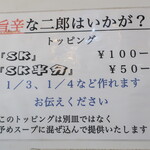 旨辛な二郎はいかが？
トッピング
『SK』 ¥100－
『SK半分』 ¥50－
1/3、1/4など作れます
お伝えください
このトッピングは別皿ではなく
予めスープに混ぜ込んで提供いたします